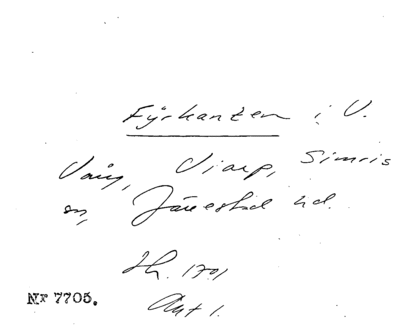 Fyrkanten i V.
Vång, Viarp, Simris
sn, Järrestad hd.
Jb. 1701
Akt 1.
Nr 7705.